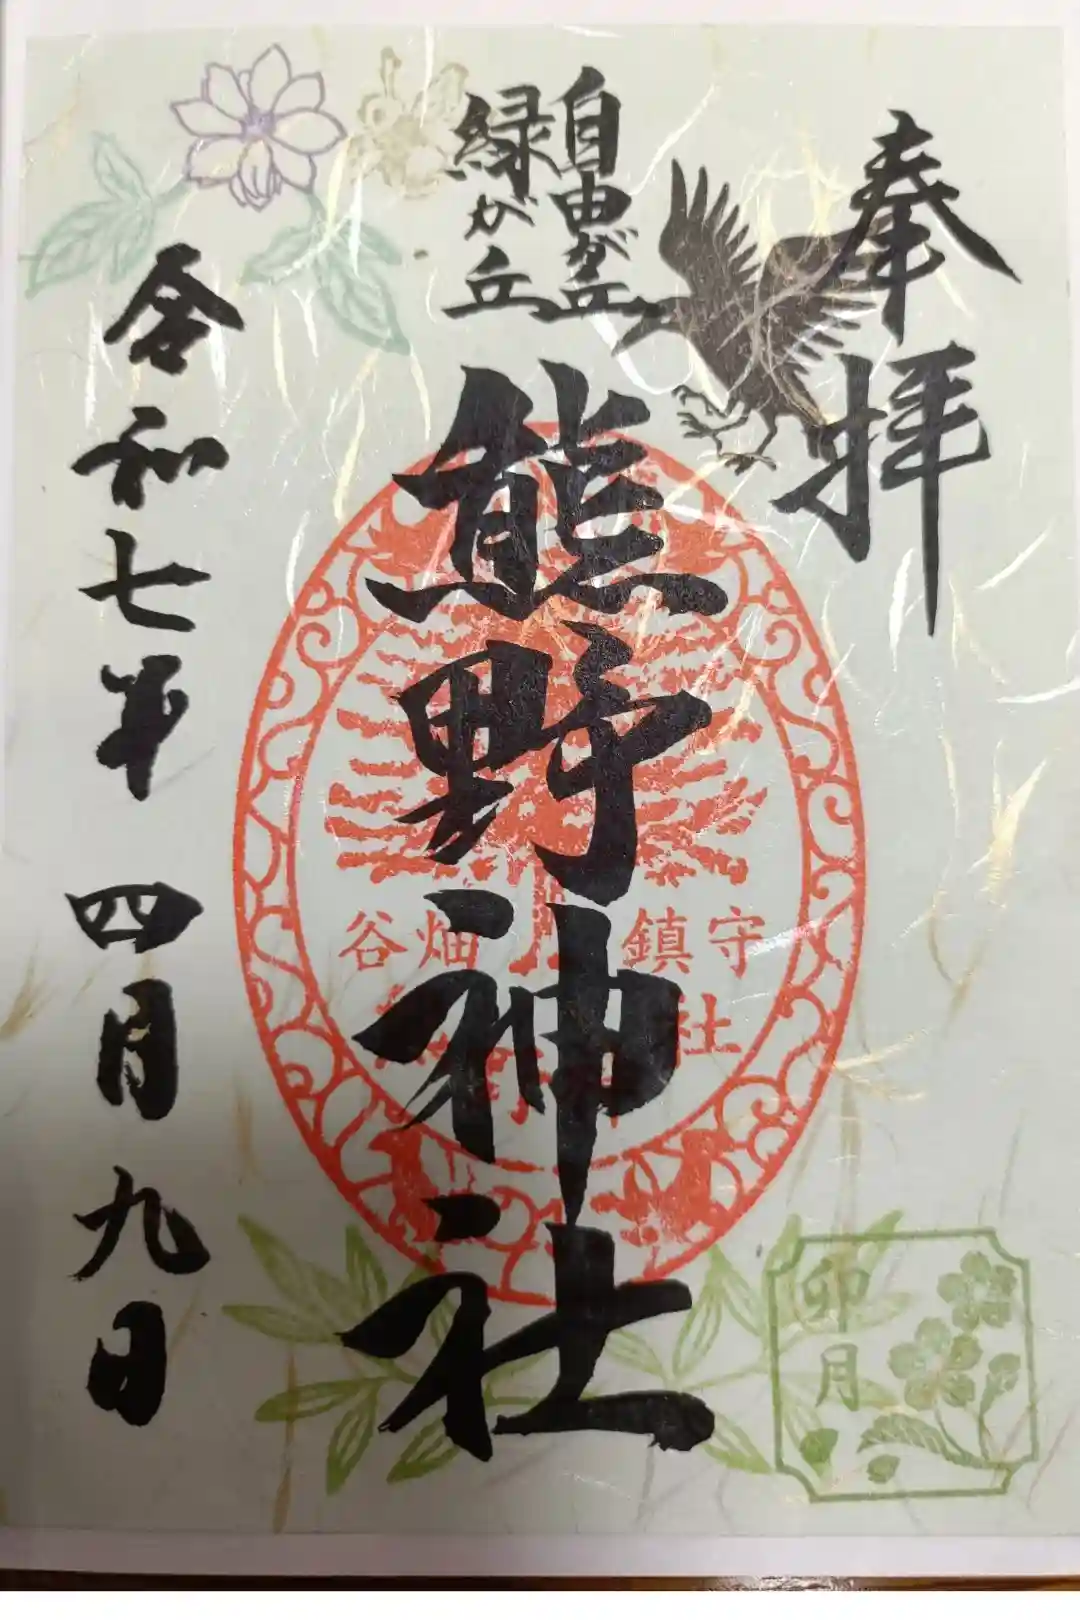 奉拝
自由が丘
緑が丘
熊野神社
令和七年 四月九日
谷畑 鎮守
社
卯月